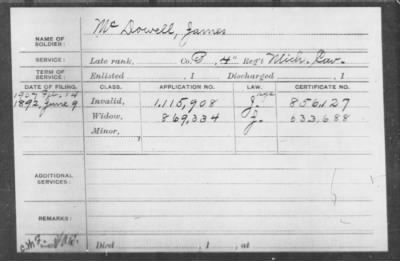 NAME OF SOLDIER: McDowell, James
SERVICE: Late rank, Co. B, 4" Reg't Mich. Cav.
TERM OF SERVICE: Enlisted , 1 . Discharged , 1
DATE OF FILING. CLASS. APPLICATION NO. LAW. CERTIFICATE NO.
Invalid, 1,115,908 J. 856127
1892, June 9 Widow, 869,334 633,688
Minor,
ADDITIONAL SERVICES:
REMARKS:
Died , 1 , at